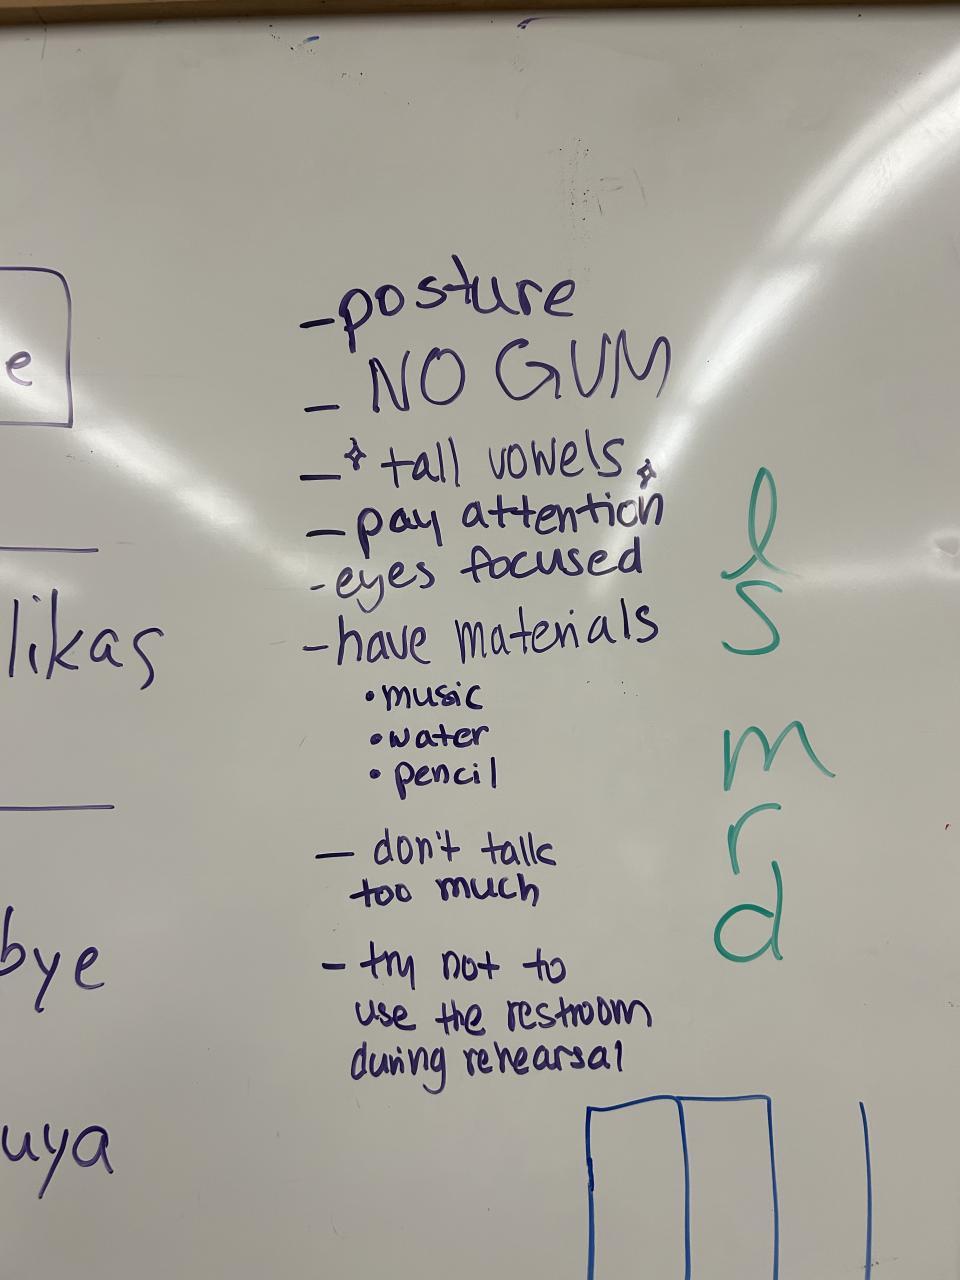 e
likas
bye
uya
- posture
- NO GUM
- tall vowels
- pay attention
- eyes focused
- have materials
• music
• water
• pencil
- don't talk
too much
- try not to
use the restroom
during rehearsal
l
s
m
r
d